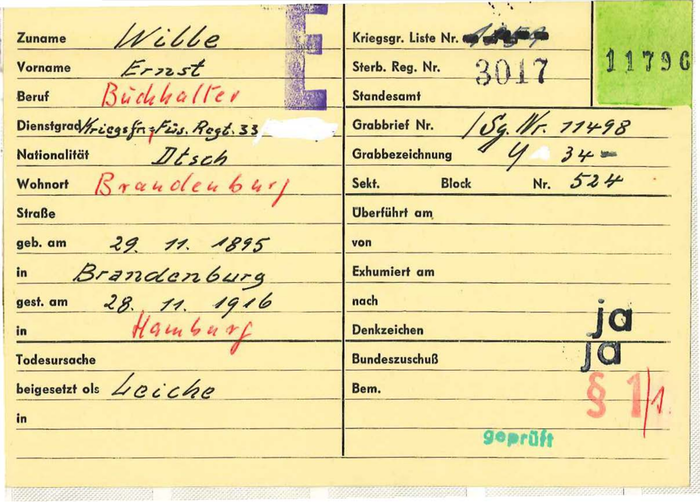 Zuname Wille
Vorname Ernst
Beruf Buchhalter
Dienstgrad Kriegsfr. Füs. Regt. 33
Nationalität Dtsch
Wohnort Brandenburg
Straße
geb. am 29. 11. 1895
in Brandenburg
gest. am 28. 11. 1916
in Hamburg
Todesursache
beigesetzt als Leiche
in
E
Kriegsgr. Liste Nr.
Sterb. Reg. Nr. 3017
Standesamt
Grabbrief Nr. /Sg. Nr. 11498
Grabbezeichnung Y 34-
Sekt. Block Nr. 524
Überführt am
von
Exhumiert am
nach
Denkzeichen ja
Bundeszuschuß ja
Bem. § 1/1.
geprüft
11796